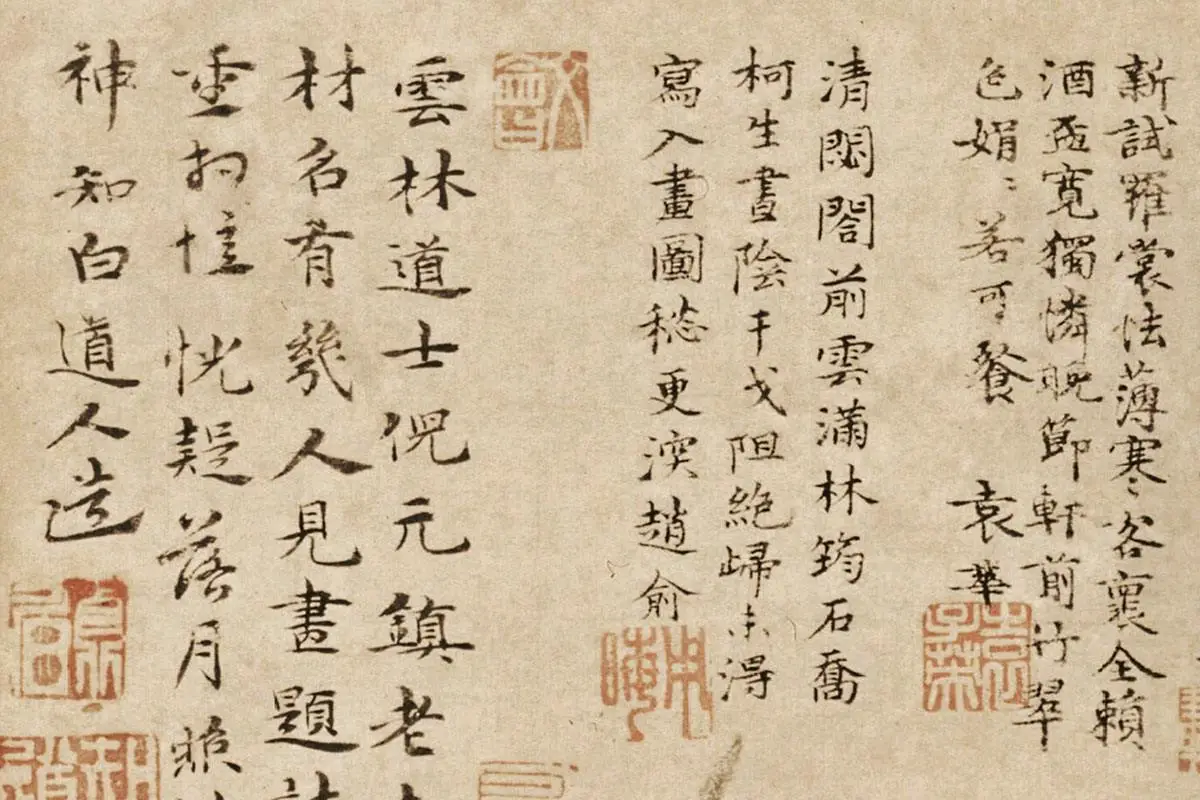 新試羅裳怯薄寒客裏全賴
酒盃寬獨憐晚節軒前竹翠
色娟〻若可餐 袁華
清閟閣前雲滿林筠石喬
柯生晝陰干戈阻絕歸未得
寫入畫圖愁更深趙俞
雲林道士倪元鎮老
材名有幾人見畫題
重拊憶恍疑落月照
神知白道人造